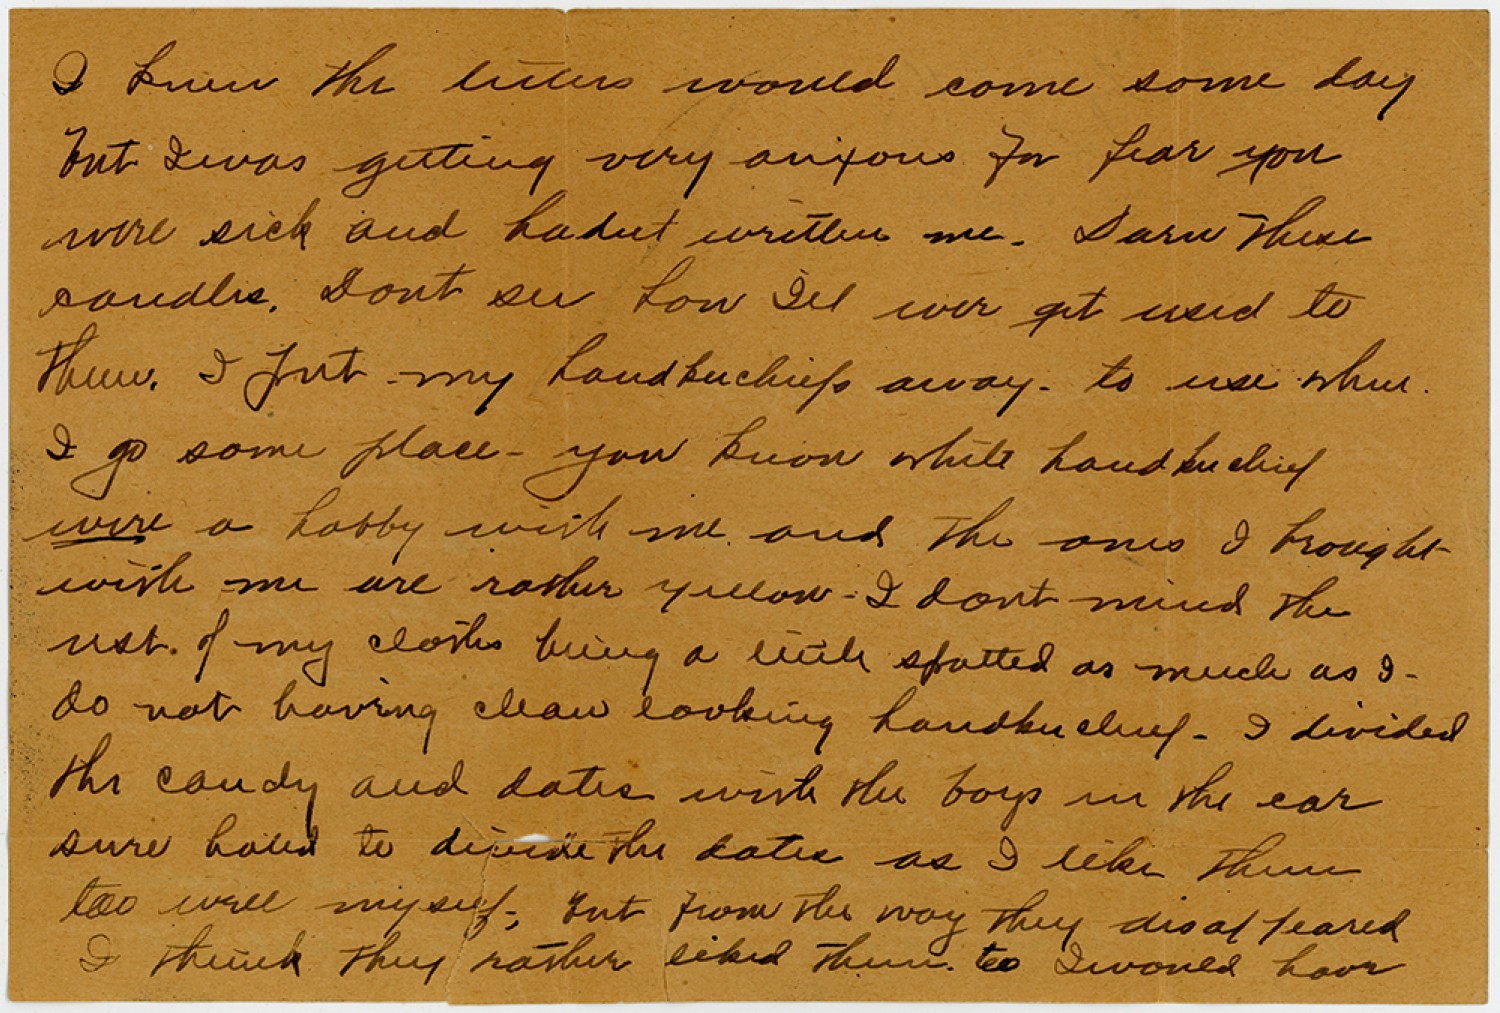 I knew the letters would come some day
but I was getting very anixous for fear you
were sick and hadnt written me. Darn these
candles. Dont see how I'll ever get used to
them. I put my handkerchiefs away - to use when
I go some place - you know white handkerchief
were a hobby with me and the ones I brought
with me are rather yellow - I dont mind the
rest of my clothes being a little spotted as much as I
do not having clean looking handkerchief - I divided
the candy and dates with the boys in the car
sure hated to divide the dates as I like them
too well myself, but from the way they disappeared
I think they rather liked them to I would have